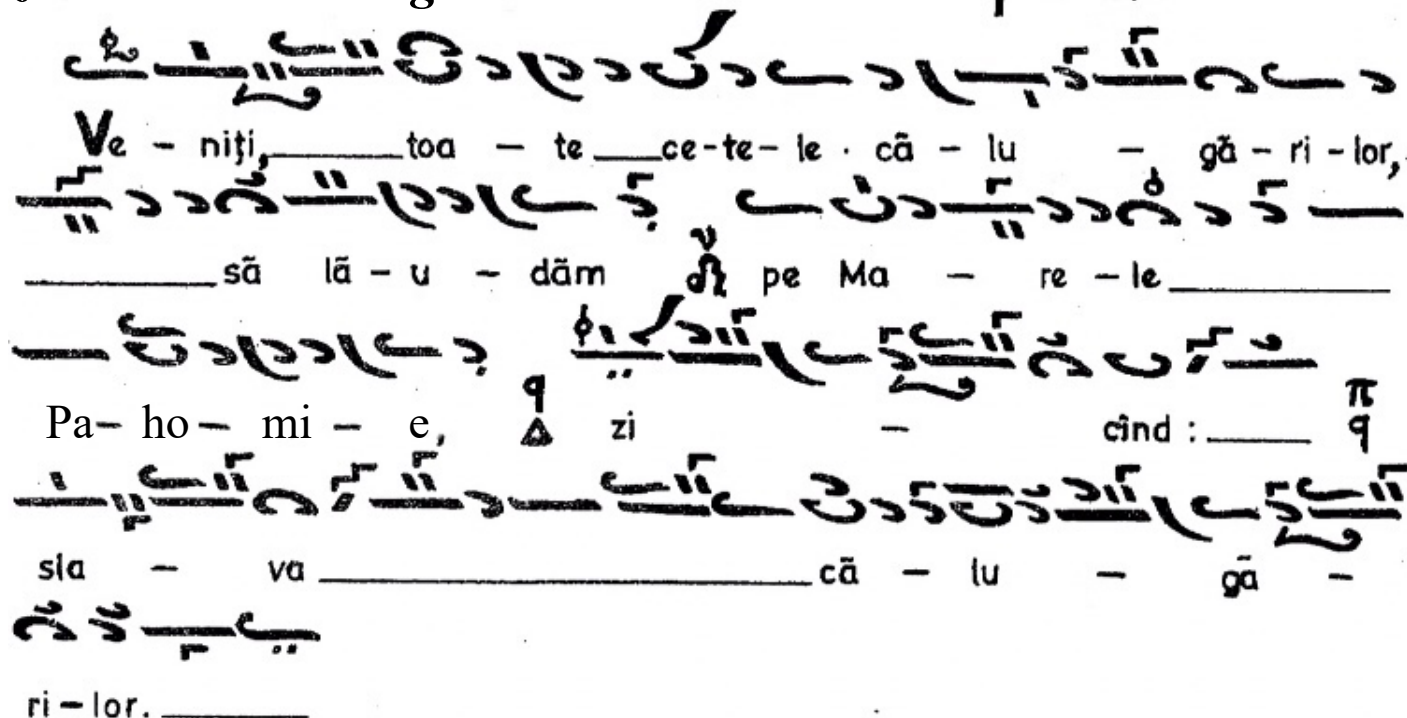 Ve - niţi,______toa - te___ce-te-le. cã - lu - gã - ri - lor,
_________sã lã - u - dãm pe Ma - re - le__________
Pa- ho - mi - e, zi - cînd :_____
sla - va______________________cã - lu - gã -
ri - lor._______